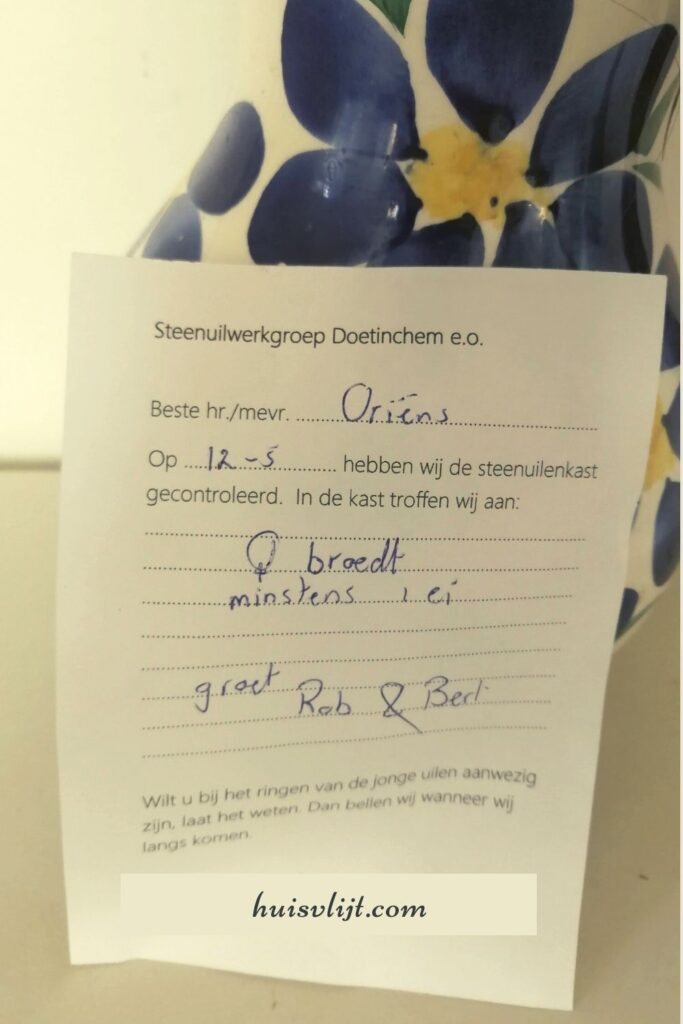 Steenuilwerkgroep Doetinchem e.o.
Beste hr./mevr. Oriëns
Op 12-5 hebben wij de steenuilenkast
gecontroleerd. In de kast troffen wij aan:
♀ broedt
minstens 1 ei
groet Rob & Bert
Wilt u bij het ringen van de jonge uilen aanwezig
zijn, laat het weten. Dan bellen wij wanneer wij
langs komen.
huisvlijt.com